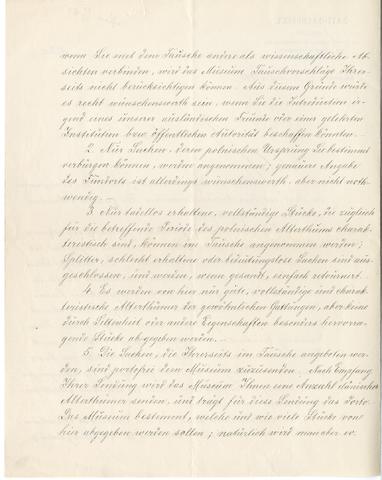 wenn Sie mit dem Tausche andere als wissenschaftliche Ab-
sichten verbinden, wird das Museum Tauschvorschläge Ihrer-
seits nicht berücksichtigen können. Aus diesem Grunde würde
es recht wünschenswerth sein, wenn Sie die Introduction ir-
gend eines unserer ausländischen Freunde oder einer gelehrten
Institution bzw. öffentlichen Autorität beschaffen könnten.
2. Nur Sachen, deren polnischen Ursprung Sie bestimmt
verbürgen können, werden angenommen; genauere Angabe
des Fundorts ist allerdings wünschenswerth, aber nicht noth-
wendig.
3. Nur tadellos erhaltene, vollständige Stücke, die zugleich
für die betreffende Periode des polnischen Alterthums charak-
teristisch sind, können im Tausche angenommen werden;
Splitter, schlecht erhaltene oder bedeutungslose Sachen sind aus-
geschlossen, und werden, wenn gesandt, einfach retourniert.
4. Es werden von hier nur gute, vollständige und charak-
teristische Alterthümer der gewöhnlichen Gattungen, aber keine
durch Seltenheit oder andere Eigenschaften besonders hervorra-
gende Stücke abgegeben werden.
5. Die Sachen, die Ihrerseits im Tausche angeboten wer-
den, sind portofrei dem Museum zuzusenden. Nach Empfang
Ihrer Sendung wird das Museum Ihnen eine Anzahl dänischer
Alterthümer senden, und trägt für diese Sendung das Porto.
Das Museum bestimmt, welche und wie viele Stücke von
hier abgegeben werden sollen; natürlich wird man aber ev.